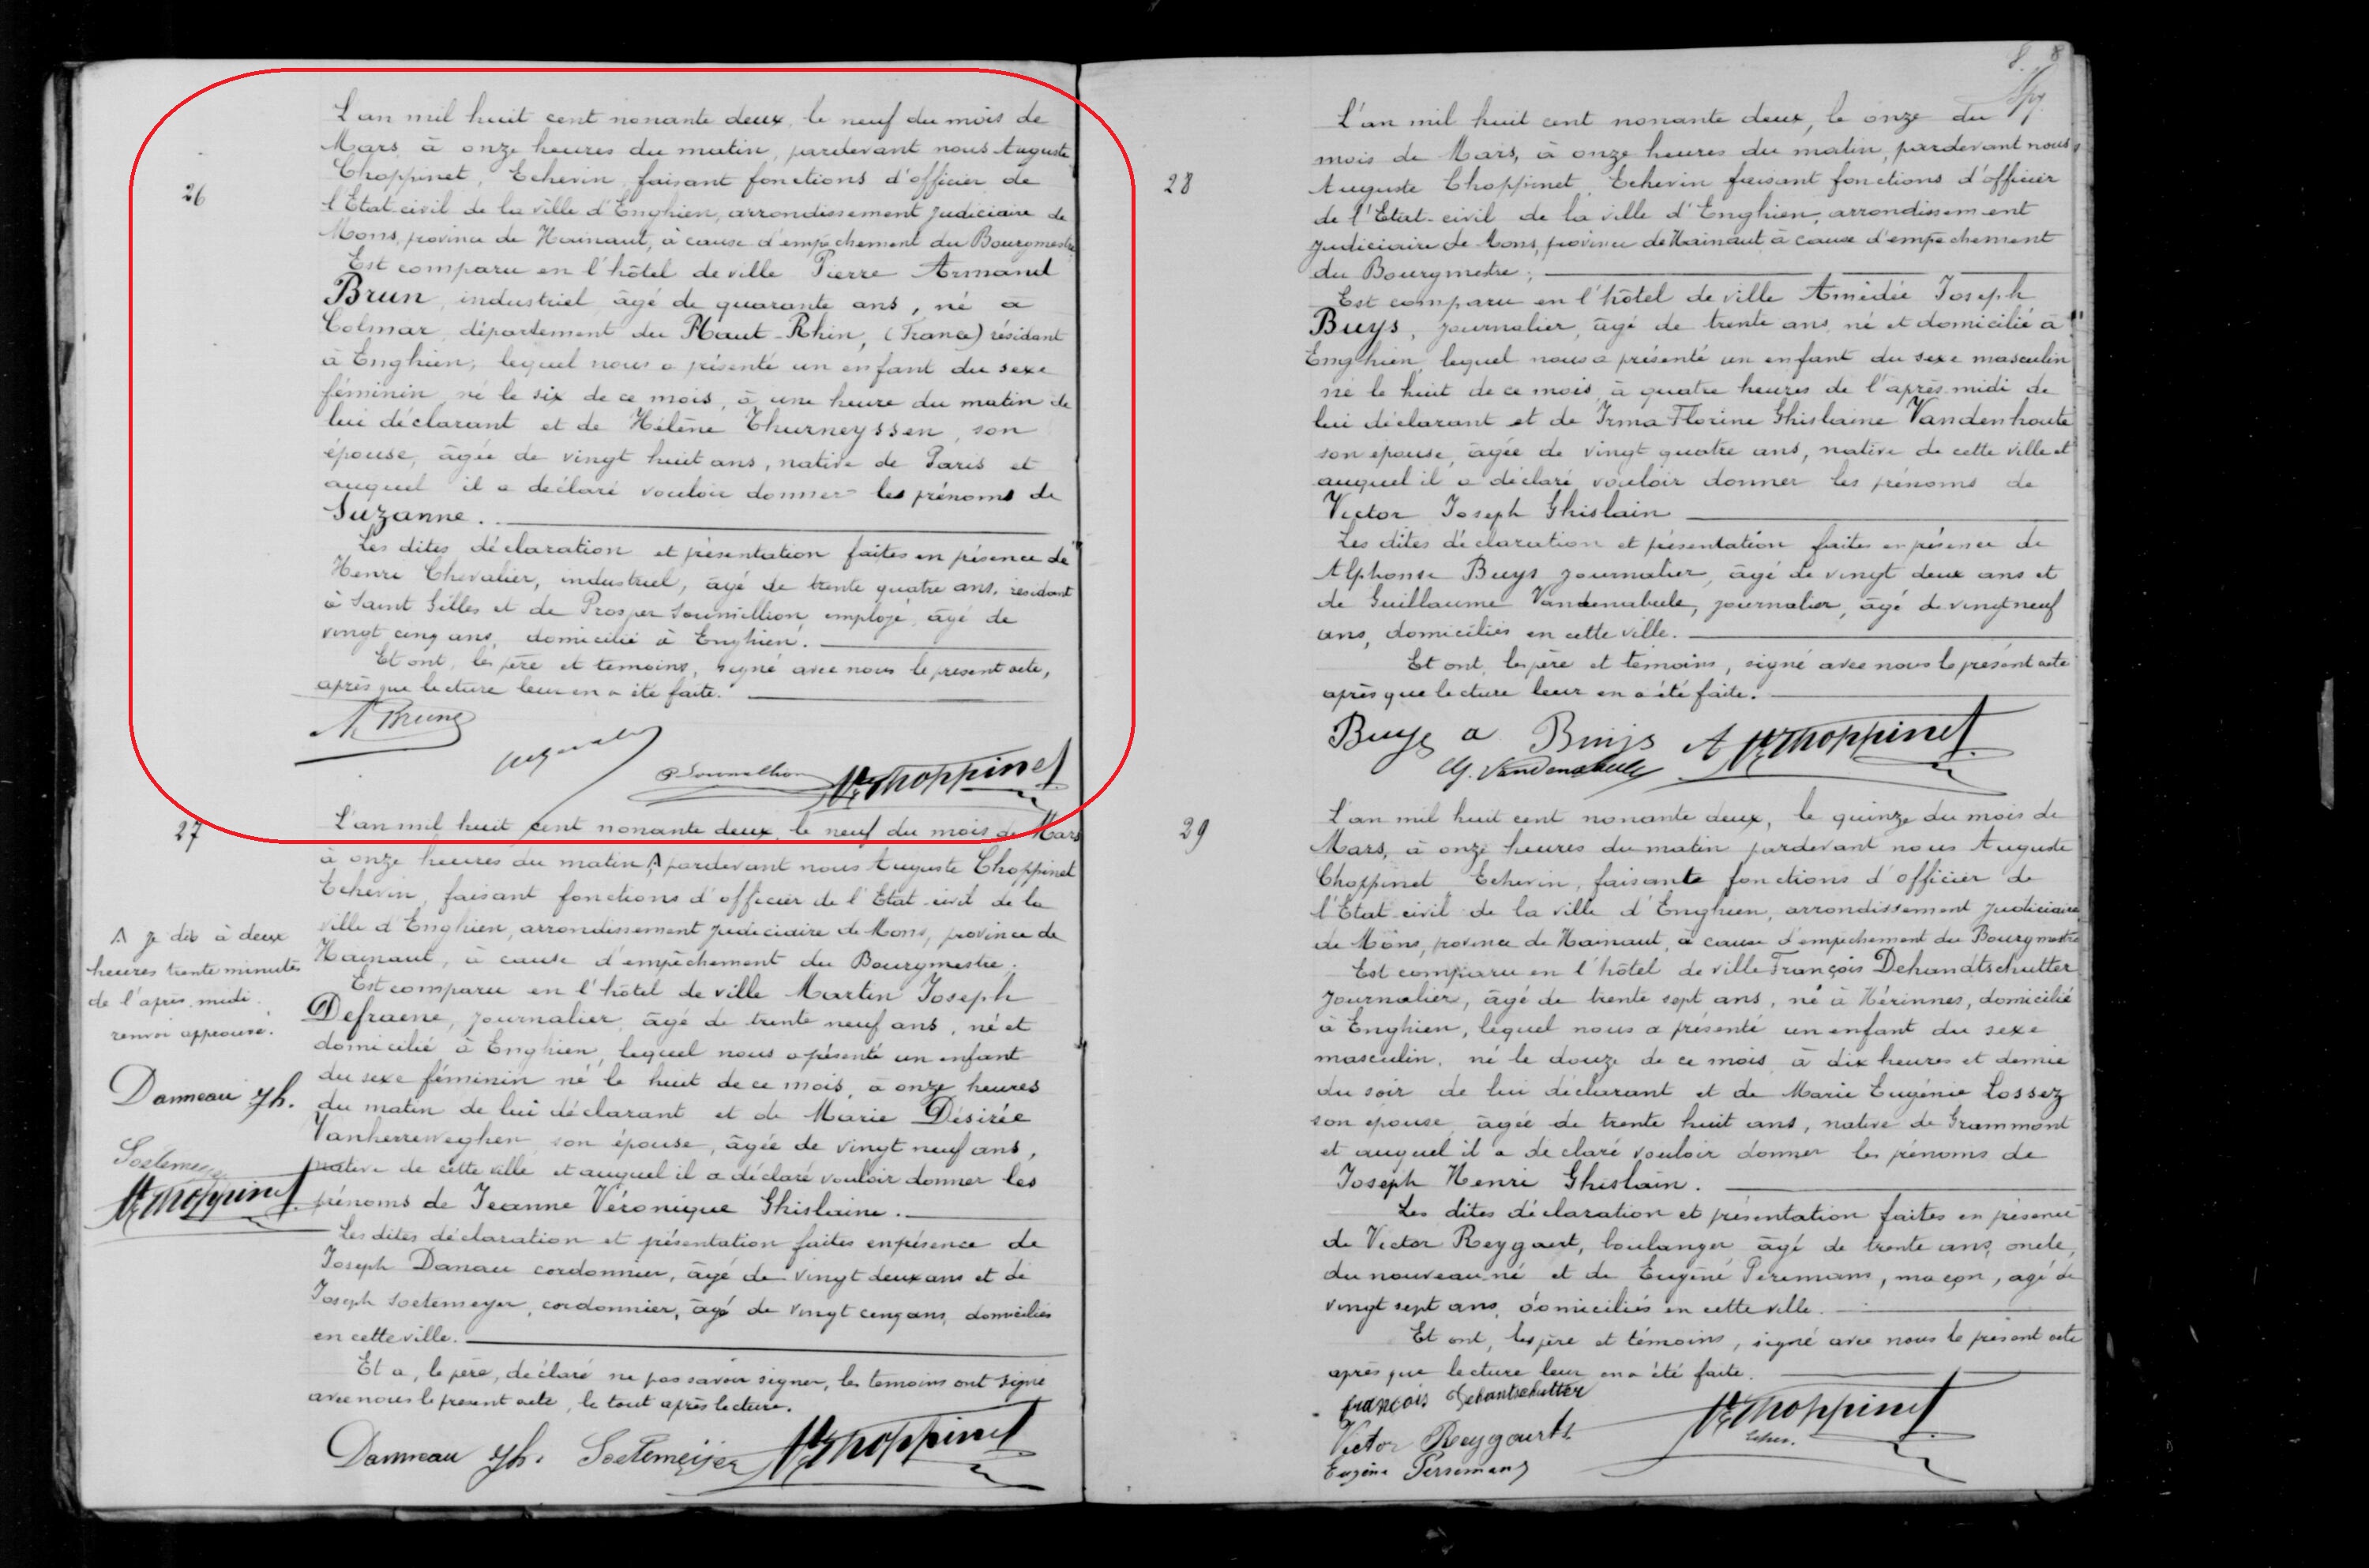 26
L'an mil huit cent nonante deux, le neuf du mois de
Mars, à onze heures du matin, pardevant nous Auguste
Choppinet, Echevin faisant fonctions d'officier de
l'Etat-civil de la ville d'Enghien, arrondissement judiciaire de
Mons, province de Hainaut, à cause d'empêchement du Bourgmestre
Est comparu en l'hôtel de ville Pierre Armand
Brun, industriel, âgé de quarante ans, né à
Colmar, département du Haut-Rhin, (France) résidant
à Enghien, lequel nous a présenté un enfant du sexe
féminin, né le six de ce mois, à une heure du matin de
lui déclarant et de Hélène Thurneyssen, son
épouse, âgée de vingt huit ans, native de Paris et
auquel il a déclaré vouloir donner les prénoms de
Suzanne.
Les dites déclaration et présentation faites en présence de
Henri Chevalier, industriel, âgé de trente quatre ans, résidant
à Saint Gilles et de Prosper Soumillion, employé, âgé de
vingt cinq ans, domicilié à Enghien.
Et ont, les père et témoins, signé avec nous le présent acte,
après que lecture leur en a été faite.
A. Brun
P Soumillion Ate Choppinet
27
L'an mil huit cent nonante deux, le neuf du mois de Mars
à onze heures du matin A pardevant nous Auguste Choppinet
Echevin, faisant fonctions d'officier de l'Etat-civil de la
ville d'Enghien, arrondissement judiciaire de Mons, province de
Hainaut, à cause d'empêchement du Bourgmestre.
Est comparu en l'hôtel de ville Martin Joseph
Defraene, journalier, âgé de trente neuf ans, né et
domicilié à Enghien, lequel nous a présenté un enfant
du sexe féminin né le huit de ce mois, à onze heures
du matin de lui déclarant et de Marie Désirée
Vanherreweghen son épouse, âgée de vingt neuf ans,
native de cette ville et auquel il a déclaré vouloir donner les
prénoms de Jeanne Véronique Ghislaine.
Les dites déclaration et présentation faites en présence de
Joseph Danau cordonnier, âgé de vingt deux ans et de
Joseph Soetemeyer, cordonnier, âgé de vingt cinq ans, domiciliés
en cette ville.
Et a, le père, déclaré ne pas savoir signer, les témoins ont signé
avec nous le présent acte, le tout après lecture.
Danneau Jh. Soetemeijer Ate Choppinet
A je dis à deux
heures trente minutes
de l'après midi.
renvoi approuvé.
Danneau Jh.
Ate Choppinet
8. 8
28
L'an mil huit cent nonante deux, le onze du
mois de Mars, à onze heures du matin, pardevant nous,
Auguste Choppinet, Echevin faisant fonctions d'officier
de l'Etat-civil de la ville d'Enghien, arrondissement
judiciaire de Mons, province de Hainaut à cause d'empêchement
du Bourgmestre;
Est comparu en l'hôtel de ville Amédée Joseph
Buys, journalier, âgé de trente ans, né et domicilié à
Enghien, lequel nous a présenté un enfant du sexe masculin
né le huit de ce mois à quatre heures de l'après midi de
lui déclarant et de Irma Florine Ghislaine Vandenhoute
son épouse, âgée de vingt quatre ans, native de cette ville et
auquel il a déclaré vouloir donner les prénoms de
Victor Joseph Ghislain
Les dites déclaration et présentation faites en présence de
Alphonse Buys journalier, âgé de vingt deux ans et
de Guillaume Vandenabeele, journalier, âgé de vingt neuf
ans, domiciliés en cette ville.
Et ont, les père et témoins, signé avec nous le présent acte
après que lecture leur en a été faite.
Buys a Buijs A Ate Choppinet
G. Vandenabeele
29
L'an mil huit cent nonante deux, le quinze du mois de
Mars, à onze heures du matin pardevant nous Auguste
Choppinet Echevin, faisant fonctions d'officier de
l'Etat-civil de la ville d'Enghien, arrondissement judiciaire
de Mons, province de Hainaut, à cause d'empêchement du Bourgmestre
Est comparu en l'hôtel de ville François Dehandtschutter
journalier, âgé de trente sept ans, né à Hérinnes, domicilié
à Enghien, lequel nous a présenté un enfant du sexe
masculin, né le douze de ce mois à dix heures et demie
du soir de lui déclarant et de Marie Eugénie Lossez
son épouse âgée de trente huit ans, native de Grammont
et auquel il a déclaré vouloir donner les prénoms de
Joseph Henri Ghislain.
Les dites déclaration et présentation faites en présence
de Victor Reygaert, boulanger âgé de trente ans, oncle,
du nouveau né et de Eugène Peremans, maçon, âgé de
vingt sept ans, domiciliés en cette ville.
Et ont, les père et témoins, signé avec nous le présent acte
après que lecture leur en a été faite.
françois dehantschutter Ate Choppinet
Victor Reygaerts Echev.
Eugène Persemans